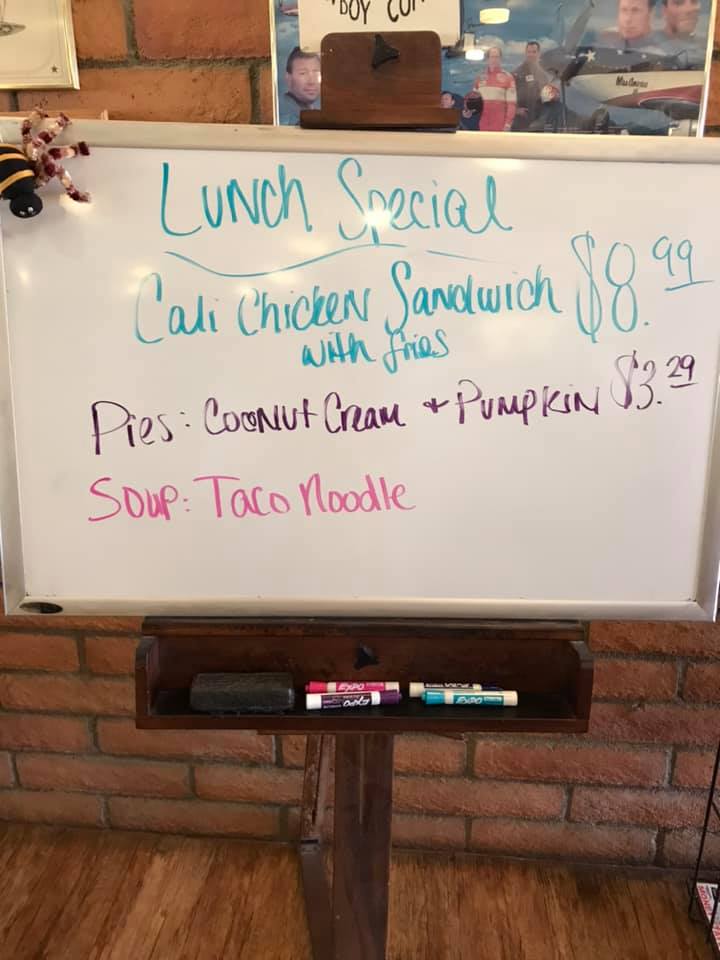 BOY COM
Lunch Special
Cali Chicken Sandwich $8.99
with fries
Pies: Coconut Cream + Pumpkin $3.29
Soup: Taco Noodle
EXPO
EXPO
EXPO